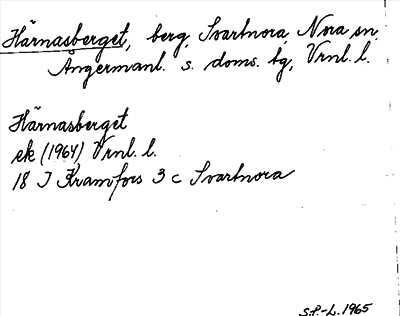 Härnasberget, berg, Svartnora, Nora sn,
Ångermanl. s. doms. bg, Vrnl. l.
Härnasberget
ek (1964) Vrnl. l.
18 I Kramfors 3 c Svartnora
S.P.-L. 1965